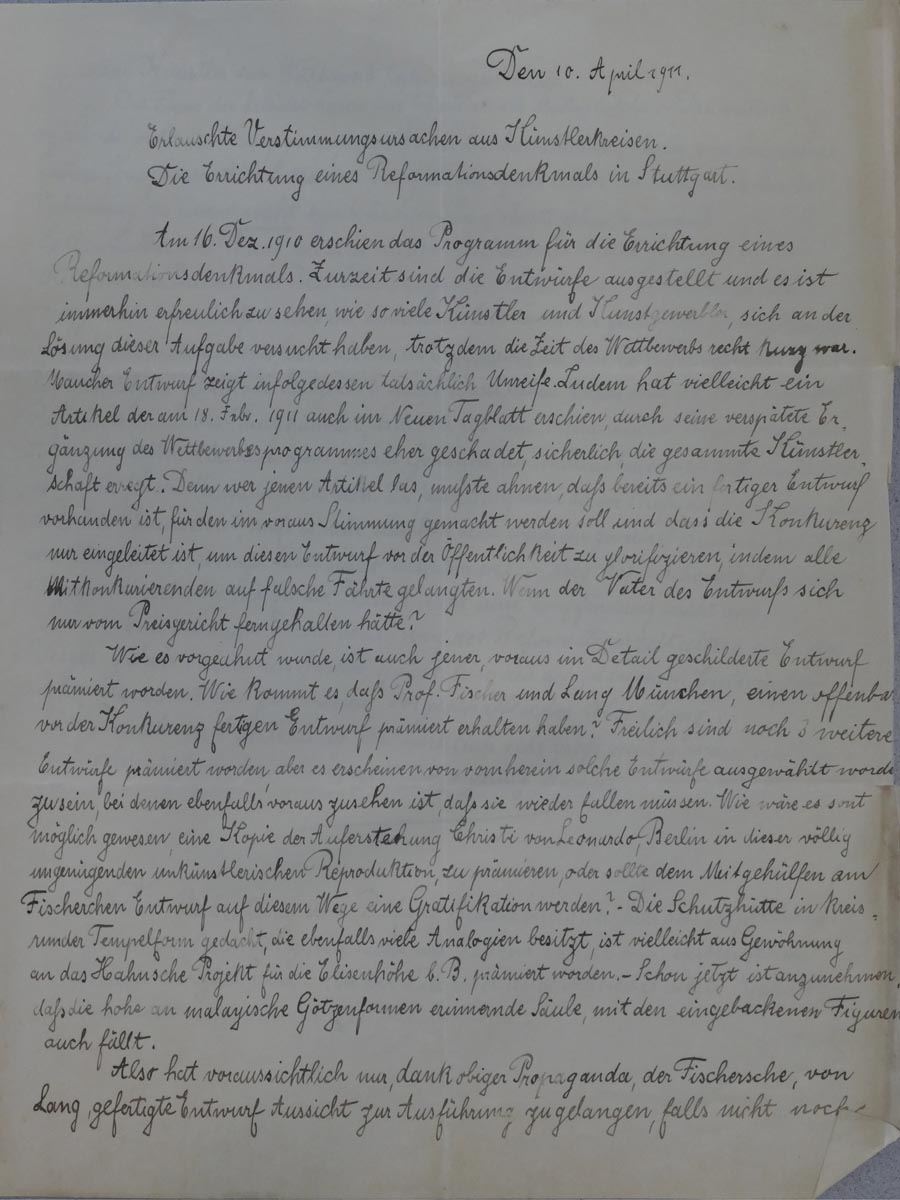 Den 10. April 1911.
Erlauschte Verstimmungsursachen aus Künstlerkreisen.
Die Errichtung eines Reformationsdenkmals in Stuttgart.
Am 16. Dez. 1910 erschien das Programm für die Errichtung eines
Reformationsdenkmals. Zurzeit sind die Entwürfe ausgestellt und es ist
immerhin erfreulich zu sehen, wie so viele Künstler und Kunstgewerbler, sich an der
Lösung dieser Aufgabe versucht haben, trotzdem die Zeit des Wettbewerbs recht kurz war.
Mancher Entwurf zeigt infolgedessen tatsächlich Unreife. Zudem hat vielleicht ein
Artikel der am 18. Febr. 1911 auch im Neuen Tagblatt erschien, durch seine verspätete Er-
gänzung des Wettbewerbsprogrammes eher geschadet, sicherlich, die gesammte Künstler-
schaft erregt. Denn wer jenen Artikel las, musste ahnen, dass bereits ein fertiger Entwurf
vorhanden ist, für den im voraus Stimmung gemacht werden soll und dass die Konkurenz
nur eingeleitet ist, um diesen Entwurf vor der Öffentlichkeit zu glorifizieren, indem alle
Mitkonkurierenden auf falsche Fährte gelangten. Wenn der Vater des Entwurfs sich
nur vom Preisgericht ferngehalten hätte?
Wie es vorgeahnt wurde, ist auch jener, voraus im Detail geschilderte Entwurf
prämiert worden. Wie kommt es, dass Prof. Fischer und Lang München, einen offenba
vor der Konkurenz fertigen Entwurf prämiert erhalten haben? Freilich sind noch 3 weitere
Entwürfe prämiert worden, aber es erscheinen von vornherein solche Entwürfe ausgewählt worde
zu sein, bei denen ebenfalls voraus zusehen ist, dass sie wieder fallen müssen. Wie wäre es sont
möglich gewesen, eine Kopie der Auferstehung Christi von Leonardo, Berlin in dieser völlig
ungenügenden unkünstlerischen Reproduktion, zu prämieren, oder sollte dem Meitgehülfen am
Fischerchen Entwurf auf diesem Wege eine Gratifikation werden? - Die Schutzhütte in kreis-
runder Tempelform gedacht, die ebenfalls viele Analogien besitzt, ist vielleicht aus Gewöhnung
an das Hahnsche Projekt für die Elisenhöhe b. B. prämiert worden. - Schon jetzt ist anzunehmen,
dass die hohe an malayische Götzenformen erinnernde Säule, mit den eingebackenen Figuren
auch fällt.
Also hat voraussichtlich nur, dank obiger Propaganda, der Fischersche, von
Lang, gefertigte Entwurf Aussicht zur Ausführung zu gelangen, falls nicht noch